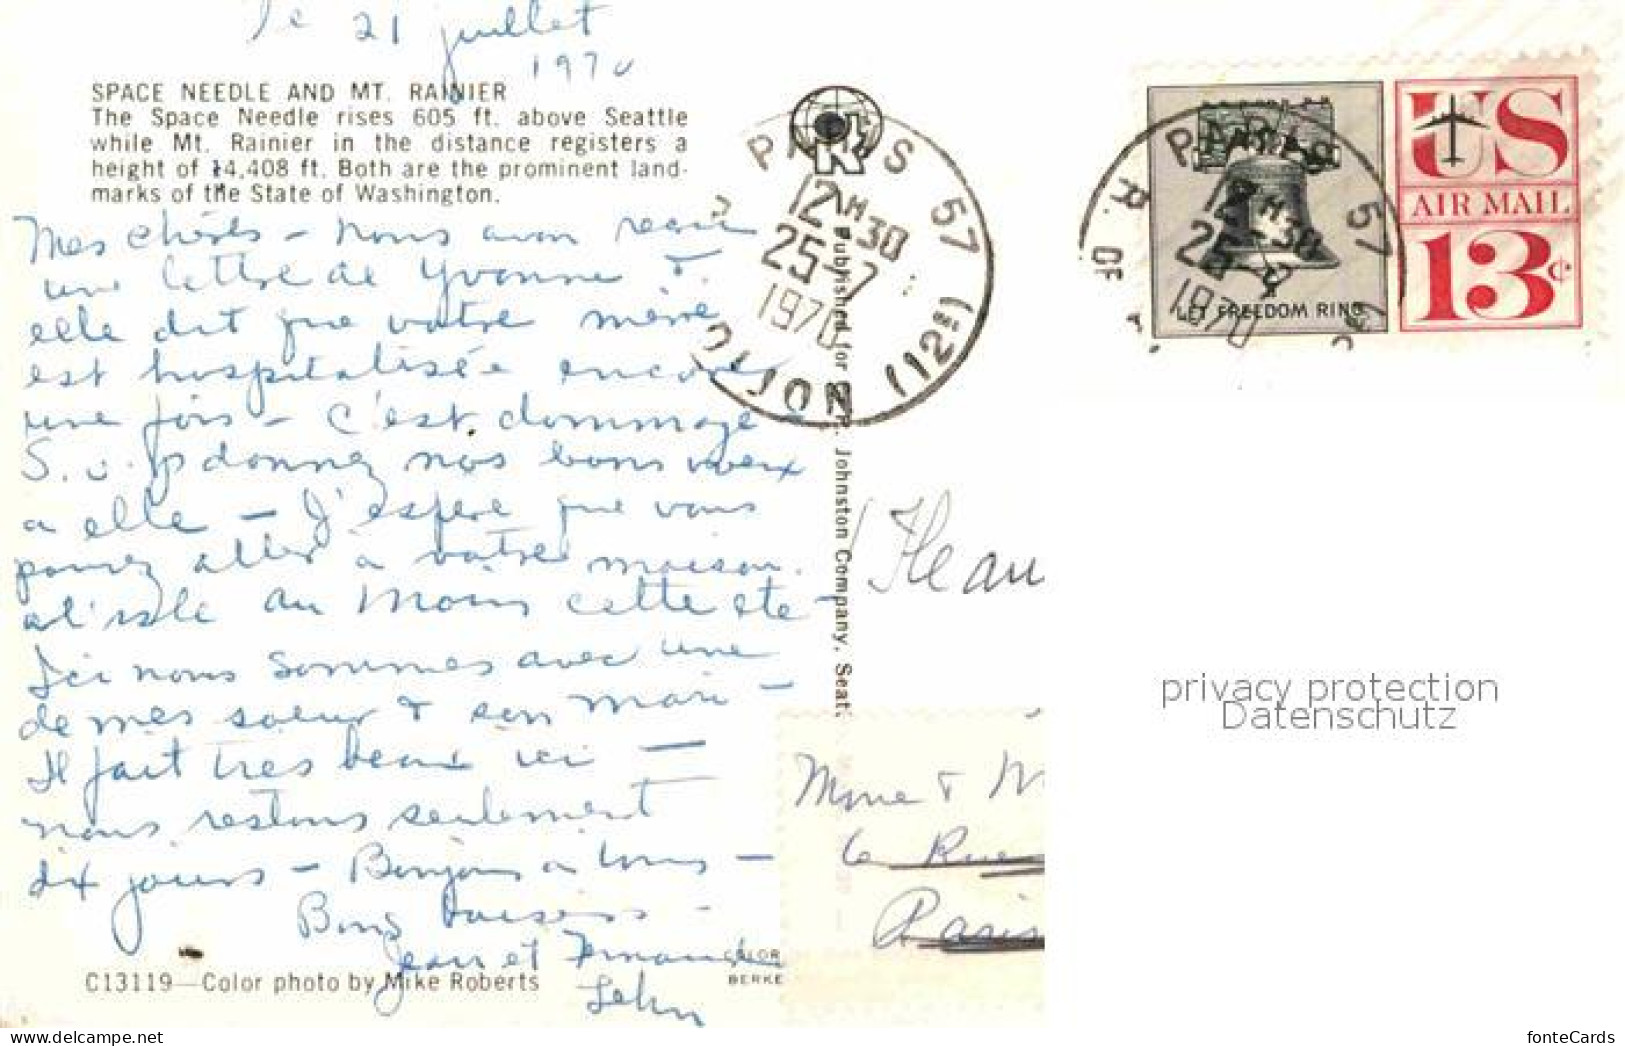 le 21 juillet
1970
SPACE NEEDLE AND MT. RAINIER
The Space Needle rises 605 ft. above Seattle
while Mt. Rainier in the distance registers a
height of 14,408 ft. Both are the prominent land-
marks of the State of Washington.
Mes chéris - nous avon reçu
une lettre de Yvonne &
elle dit que votre mère
est hospitalisée encore
une fois - C'est dommage
S. v. p donnez nos bons voeux
a elle - J'espère que vous
pourez aller a votre maison
a l'isle au moins cette éte -
Ici nous sommes avec une
de mes soeur & son mari -
Il fait tres beau ici -
nous restons seulement
dix jours - Bonjour a tous -
Bons baisers -
Jean et Fernande
Lehn
C13119—Color photo by Mike Roberts
COLOR
BERKE
Published for
Johnston Company, Seat
PARIS 57
12H30
25-7
1970
(12E)
PARIS 57
12H30
25-7
1970
R. DE
LET FREEDOM RING
US
AIR MAIL
13c
Mme & M
Rue
Paris
privacy protection
Datenschutz
fonteCards